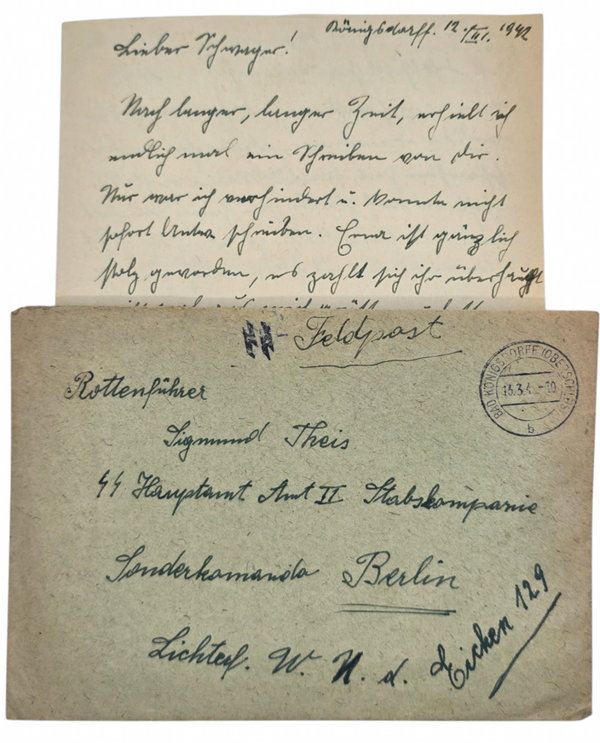 Königsdorff. 12./III. 1942
Lieber Schwager!
Nach langer, langer Zeit, erhielt ich
endlich mal ein Schreiben von Dir.
Nur war ich verhindert u. konnte nicht
sofort Antw schreiben. Erna ist gänzlich
stolz geworden, es zahlt sich ihr überhaupt
ᛋᛋ- Feldpost
BAD KÖNIGSDORFF (OBERSCHLES)
13.3.4 -10
b
Rottenführer
Sigmund Theis
ᛋᛋ Hauptamt Amt II Stabskompanie
Sonderkomando Berlin
Lichterf. W. U. d. Eichen 129